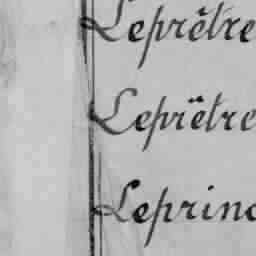 Leprêtre
Leprëtre
Leprinc